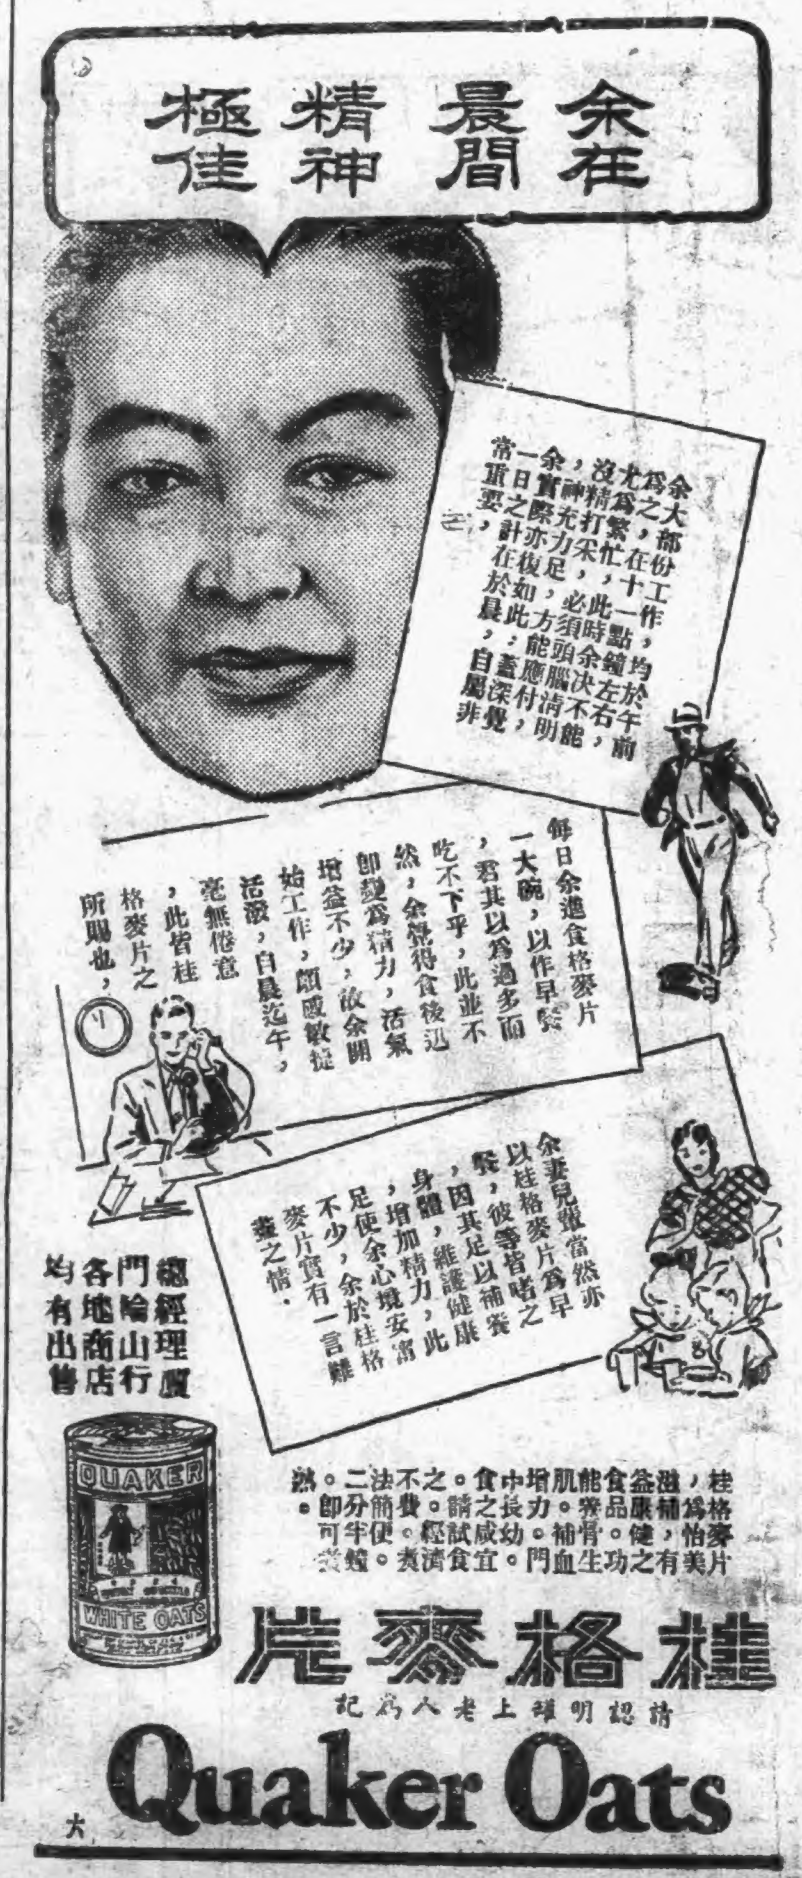 余在
晨間
精神
極佳
余大部份工作，均於午前
爲之，在十一點鐘左右，
尤爲繁忙，此時余决不能
沒精打采，必須頭腦淸明
，神充力足，方能應付，
余實際亦復如此；蓋深覺
一日之計在於晨，自屬非
常重要，
每日余進食格麥片
一大碗，以作早餐
，君其以爲過多而
吃不下乎，此並不
然，余覺得食後迅
卽變爲精力，活氣
增益不少，故余開
始工作，頗感敏捷
活潑，自晨迄午，
毫無倦意
，此皆桂
格麥片之
所賜也，
余妻兒輩當然亦
以桂格麥片爲早
餐，彼等皆嗜之
，因其足以補養
身體，維護健康
，增加精力，此
足使余心境安富
不少，余於桂格
麥片實有一言難
盡之情．
總經理廈
門輪山行
各地商店
均有出售
桂格麥片
，爲怡美
滋補，有
益康健之
食品。功
能養骨生
肌。補血
增力。門
中長幼。
食之咸宜
。請試食
之。經濟
不費。煮
法簡便。
二分半鐘
。卽可煮
熟。
QUAKER
WHITE OATS
桂格麥片
請認明罐上老人爲記
Quaker Oats
六